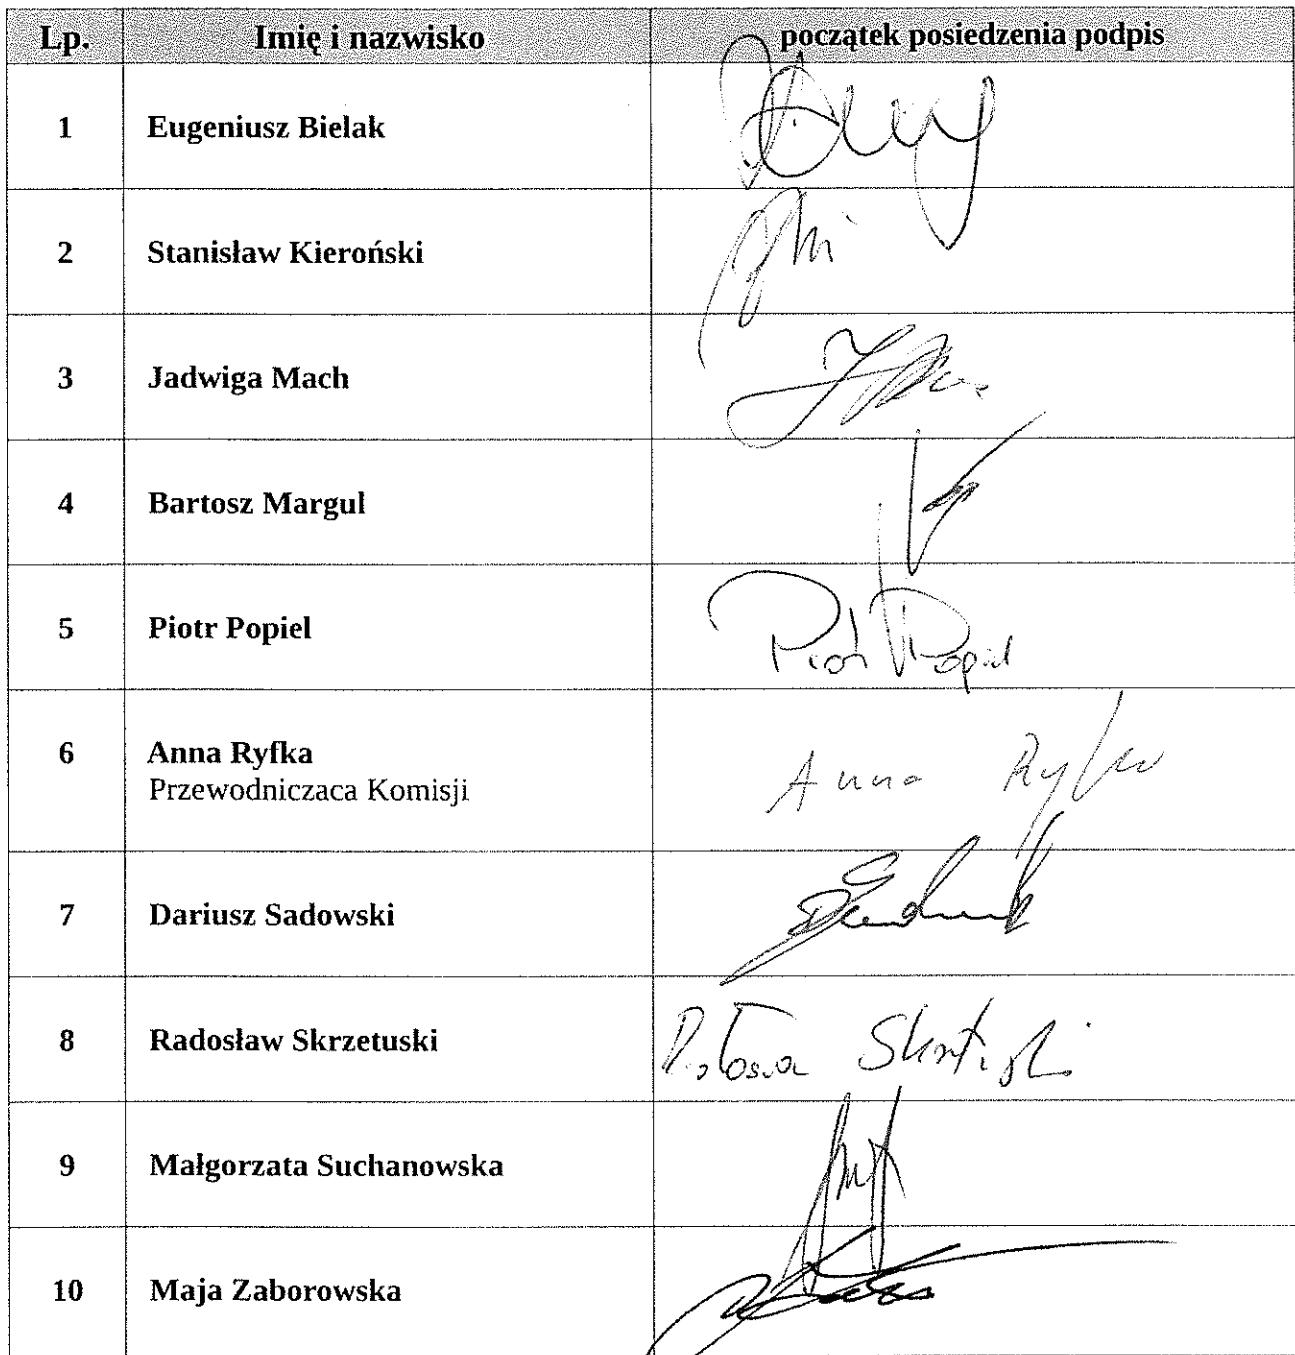 Lp. Imię i nazwisko początek posiedzenia podpis
1 Eugeniusz Bielak
2 Stanisław Kieroński
3 Jadwiga Mach
4 Bartosz Margul
5 Piotr Popiel Piotr Popiel
6 Anna Ryfka Anna Ryfka
Przewodniczaca Komisji
7 Dariusz Sadowski
8 Radosław Skrzetuski
9 Małgorzata Suchanowska
10 Maja Zaborowska